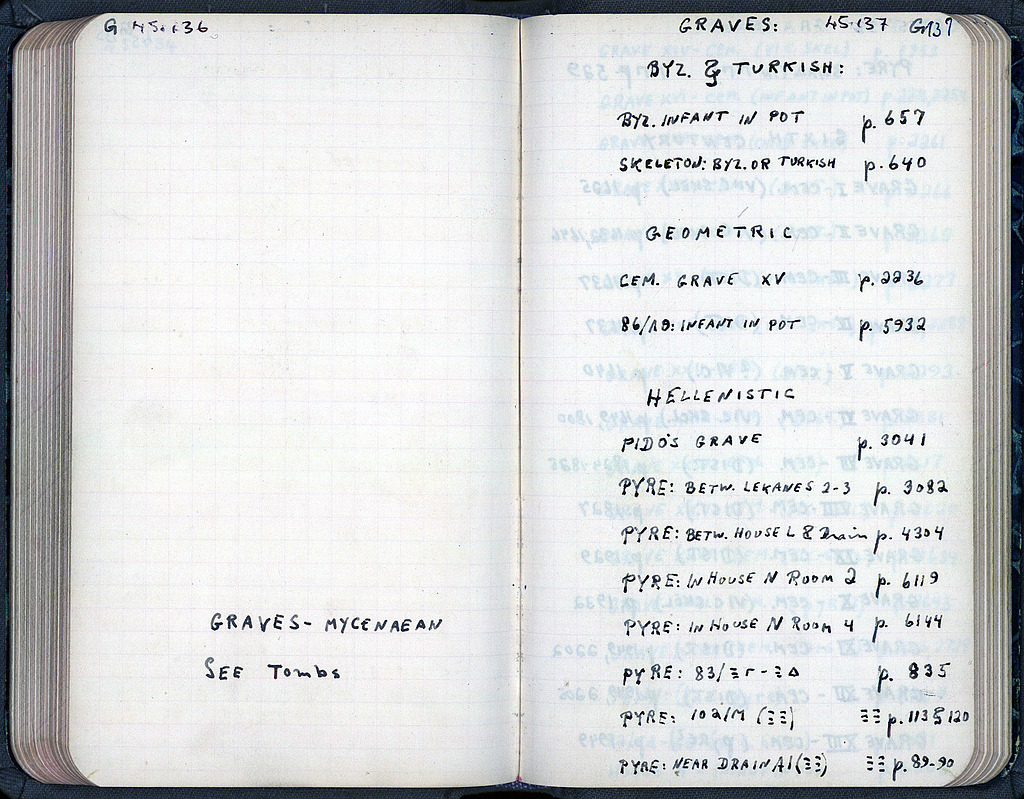 G 45.136
GRAVES- MYCENAEAN
SEE Tombs
GRAVES: 45.137 G137
BYZ. & TURKISH:
BYZ. INFANT IN POT p. 657
SKELETON: BYZ. OR TURKISH p. 640
GEOMETRIC
CEM. GRAVE XV p. 2236
86/ΛΘ: INFANT IN POT p. 5932
HELLENISTIC
PIDO'S GRAVE p. 3041
PYRE: BETW. LEKANES 2-3 p. 3082
PYRE: BETW. HOUSE L & Drain p. 4304
PYRE: IN HOUSE N ROOM 2 p. 6119
PYRE: IN HOUSE N ROOM 4 p. 6144
PYRE: 83/ΞΓ-ΞΔ p. 835
PYRE: 102/Μ (ΞΞ) ΞΞ p. 113 & 120
PYRE: NEAR DRAIN A1 (ΞΞ) ΞΞ p. 89-90